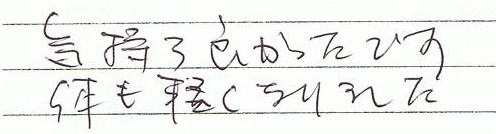 気持ち良かったです
体も軽くなりました